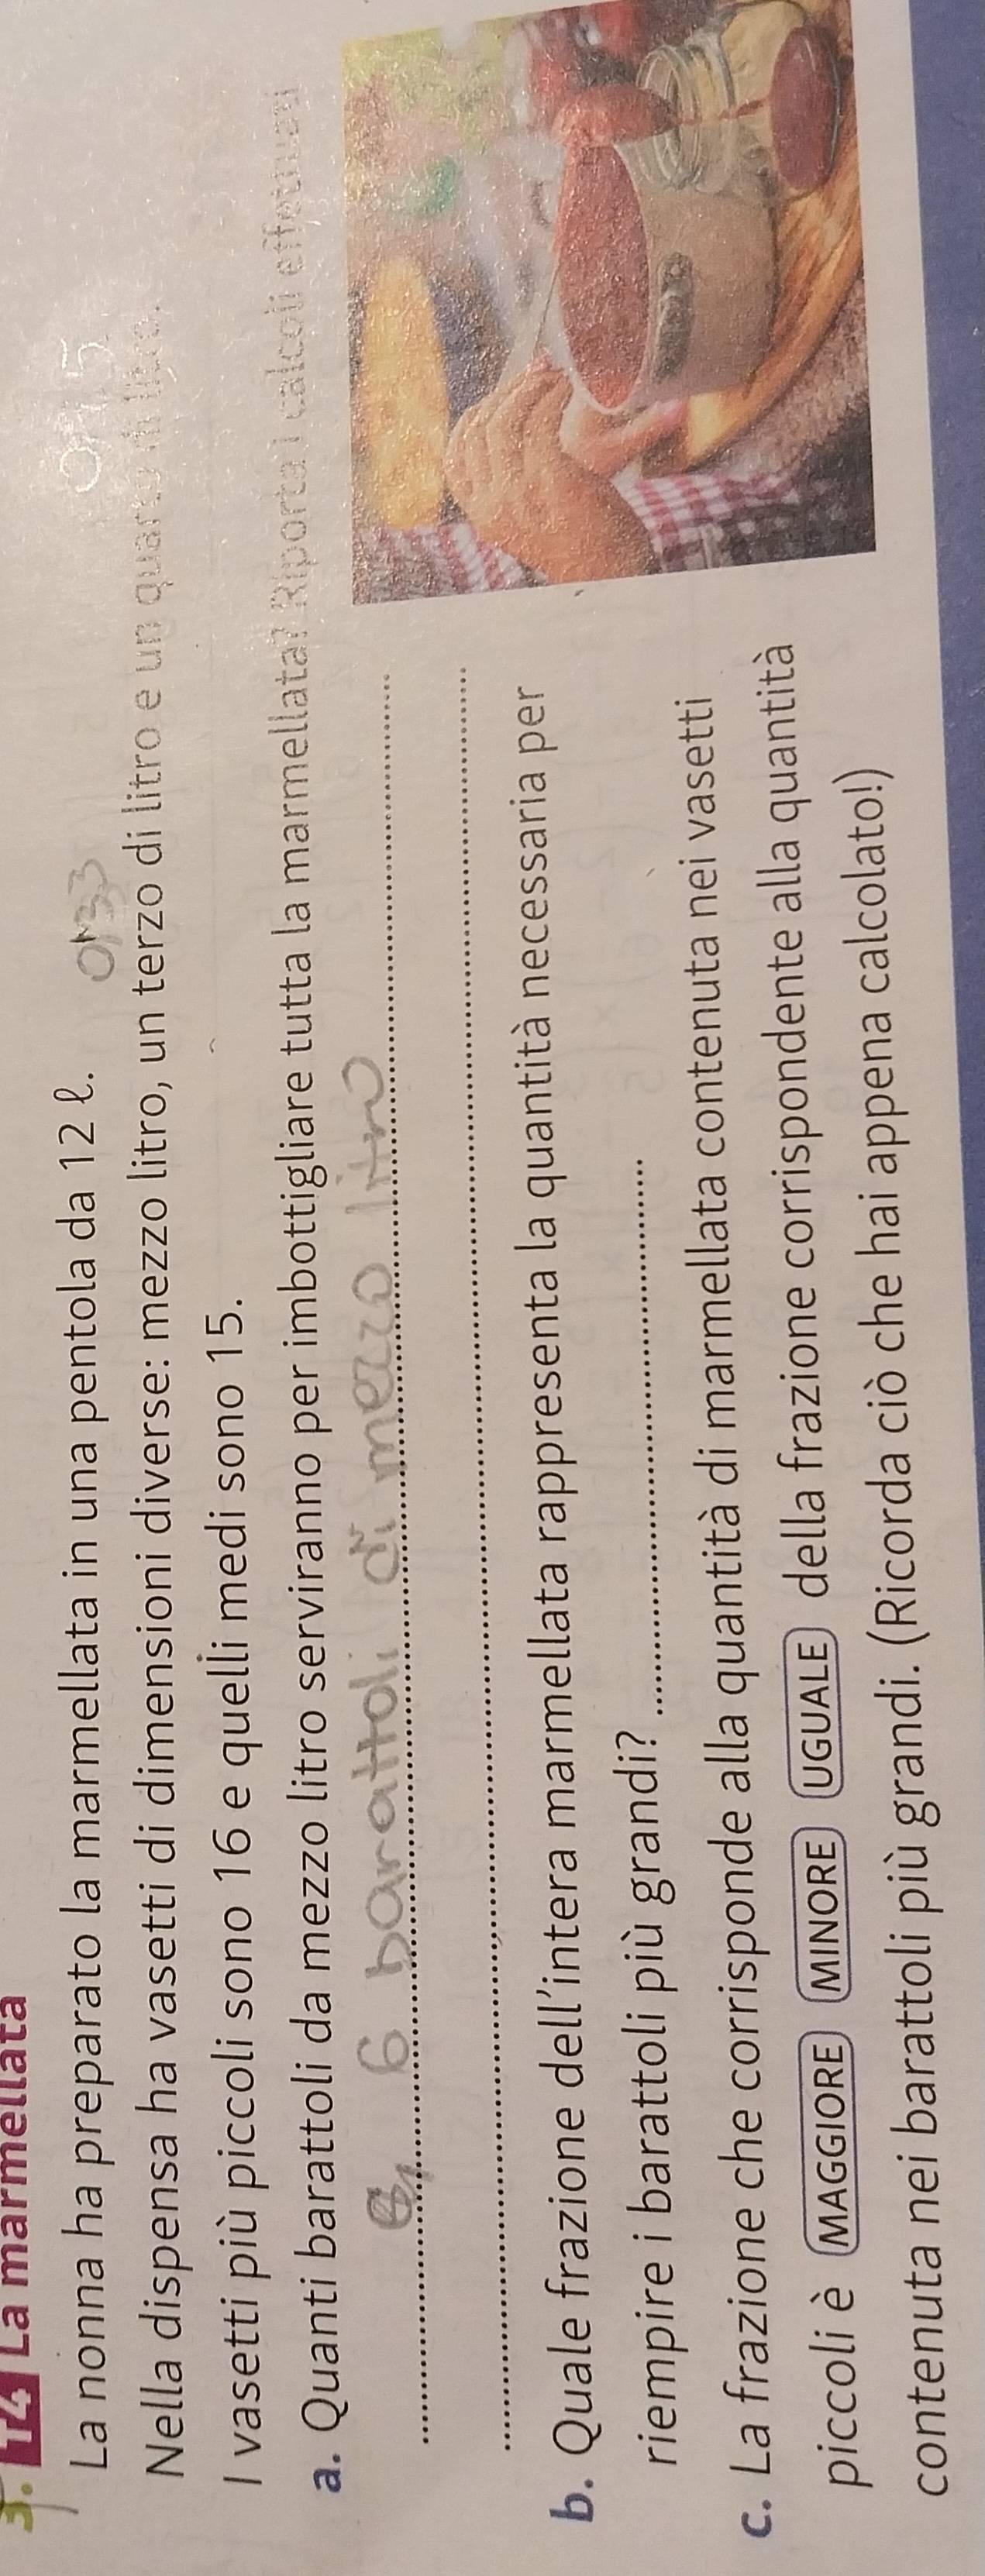 3. 14 La marmellata
La nonna ha preparato la marmellata in una pentola da 12 ℓ.
0,33
Nella dispensa ha vasetti di dimensioni diverse: mezzo litro, un terzo di litro e un quarto di litro.
I vasetti più piccoli sono 16 e quelli medi sono 15.
a. Quanti barattoli da mezzo litro serviranno per imbottigliare tutta la marmellata? Riporta i calcoli effettuati
6 barattoli di mezzo litro
b. Quale frazione dell'intera marmellata rappresenta la quantità necessaria per
riempire i barattoli più grandi?
c. La frazione che corrisponde alla quantità di marmellata contenuta nei vasetti
piccoli è MAGGIORE MINORE UGUALE della frazione corrispondente alla quantità
contenuta nei barattoli più grandi. (Ricorda ciò che hai appena calcolato!)